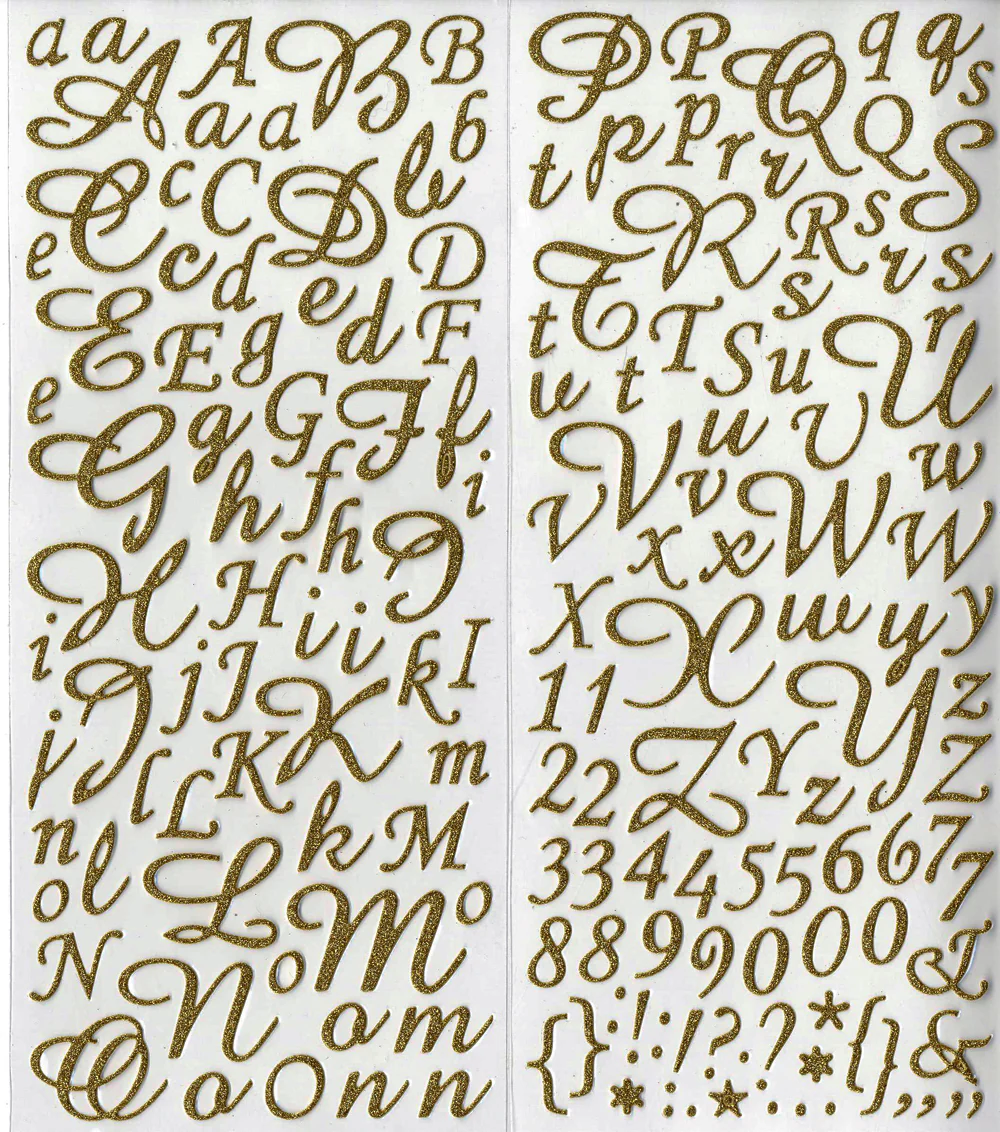 a a A A B B
a a b
C c C D b
e c c d D
E E g e d F
e G g G F f
h f h i
H H i i I I
i j J k I
j I l L K K m
n l k M
o L M o
N N o o m
O o O n n
P P Q q q s
t p p r r Q S
R R s s
T t T S s r s
t u t u r U
V u U w
v V v W W
x x
X X w y y
1 1 Y z
2 2 Z Y z Z
3 3 4 4 5 5 6 6 7 7
8 8 9 9 0 0 0 &
{ } : ! : ! ? . ? * { } &
* : * : . . . , , , ,